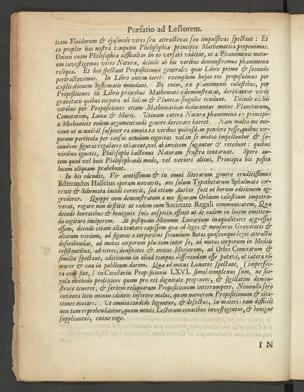 Præfatio ad Lectorem.
tiam Fluidorum & ejusmodi vires seu attractivas seu impulsivas spectant: Et
ea propter hæc nostra tanquam Philosophiæ principia Mathematica proponimus.
Omnis enim Philosophiæ difficultas in eo versari videtur, ut a Phænomenis motu-
um investigemus vires Naturæ, deinde ab his viribus demonstremus phænomena
reliqua. Et huc spectant Propositiones generales quas Libro primo & secundo
pertractavimus. In Libro autem tertio exemplum hujus rei proposuimus per
explicationem Systematis mundani. Ibi enim, ex phænomenis cælestibus, per
Propositiones in Libris prioribus Mathematice demonstratas, derivantur vires
gravitatis quibus corpora ad Solem & Planetas singulos tendunt. Deinde ex his
viribus per Propositiones etiam Mathematicas deducuntur motus Planetarum,
Cometarum, Lunæ & Maris. Utinam cætera Naturæ phænomena ex principi-
is Mechanicis eodem argumentandi genere derivare liceret. Nam multa me mo-
vent ut nonnihil suspicer ea omnia ex viribus quibusdam pendere posse, quibus cor-
porum particulæ per causas nondum cognitas vel in se mutuo impelluntur & se-
cundum figuras regulares cohærent, vel ab invicem fugantur & recedunt: quibus
viribus ignotis, Philosophi hactenus Naturam frustra tentarunt. Spero au-
tem quod vel huic Philosophandi modo, vel veriori alicui, Principia hic posita
lucem aliquam præbebunt.
In his edendis, Vir acutissimus & in omni literarum genere eruditissimus
Edmundus Halleius operam navavit, nec solum Typothetarum Sphalmata cor-
rexit & Schemata incidi curavit, sed etiam Author fuit ut horum editionem ag-
grederer. Quippe cum demonstratam a me figuram Orbium cælestium impetra-
verat, rogare non destitit ut eadem cum Societate Regali communicarem, Quæ
deinde hortatibus & benignis suis auspiciis effecit ut de eadem in lucem emitten-
da cogitare inciperem. At postquam Motuum Lunarium inæqualitates aggressus
essem, deinde etiam alia tentare cœpissem quæ ad leges & mensuras Gravitatis &
aliarum virium, ad figuras a corporibus secundum datas quascunque leges attractis
describendas, ad motus corporum plurium inter se, ad motus corporum in Mediis
resistentibus, ad vires, densitates & motus Mediorum, ad Orbes Cometarum &
similia spectant, editionem in aliud tempus differendam esse putavi, ut cætera ri-
marer & una in publicum darem. Quæ ad motus Lunares spectant, (imperfec-
ta cum sint,) in Corollariis Propositionis LXVI. simul complexus sum, ne sin-
gula methodo prolixiore quam pro rei dignitate proponere, & sigillatim demon-
strare tenerer, & seriem reliquarum Propositionum interrumpere. Nonnulla sero
inventa locis minus idoneis inserere malui, quam numerum Propositionum & cita-
tiones mutare. Ut omnia candide legantur, & defectus, in materia tam difficili
non tam reprehendantur, quam novis Lectorum conatibus investigentur, & benigne
suppleantur, enixe rogo.
I N